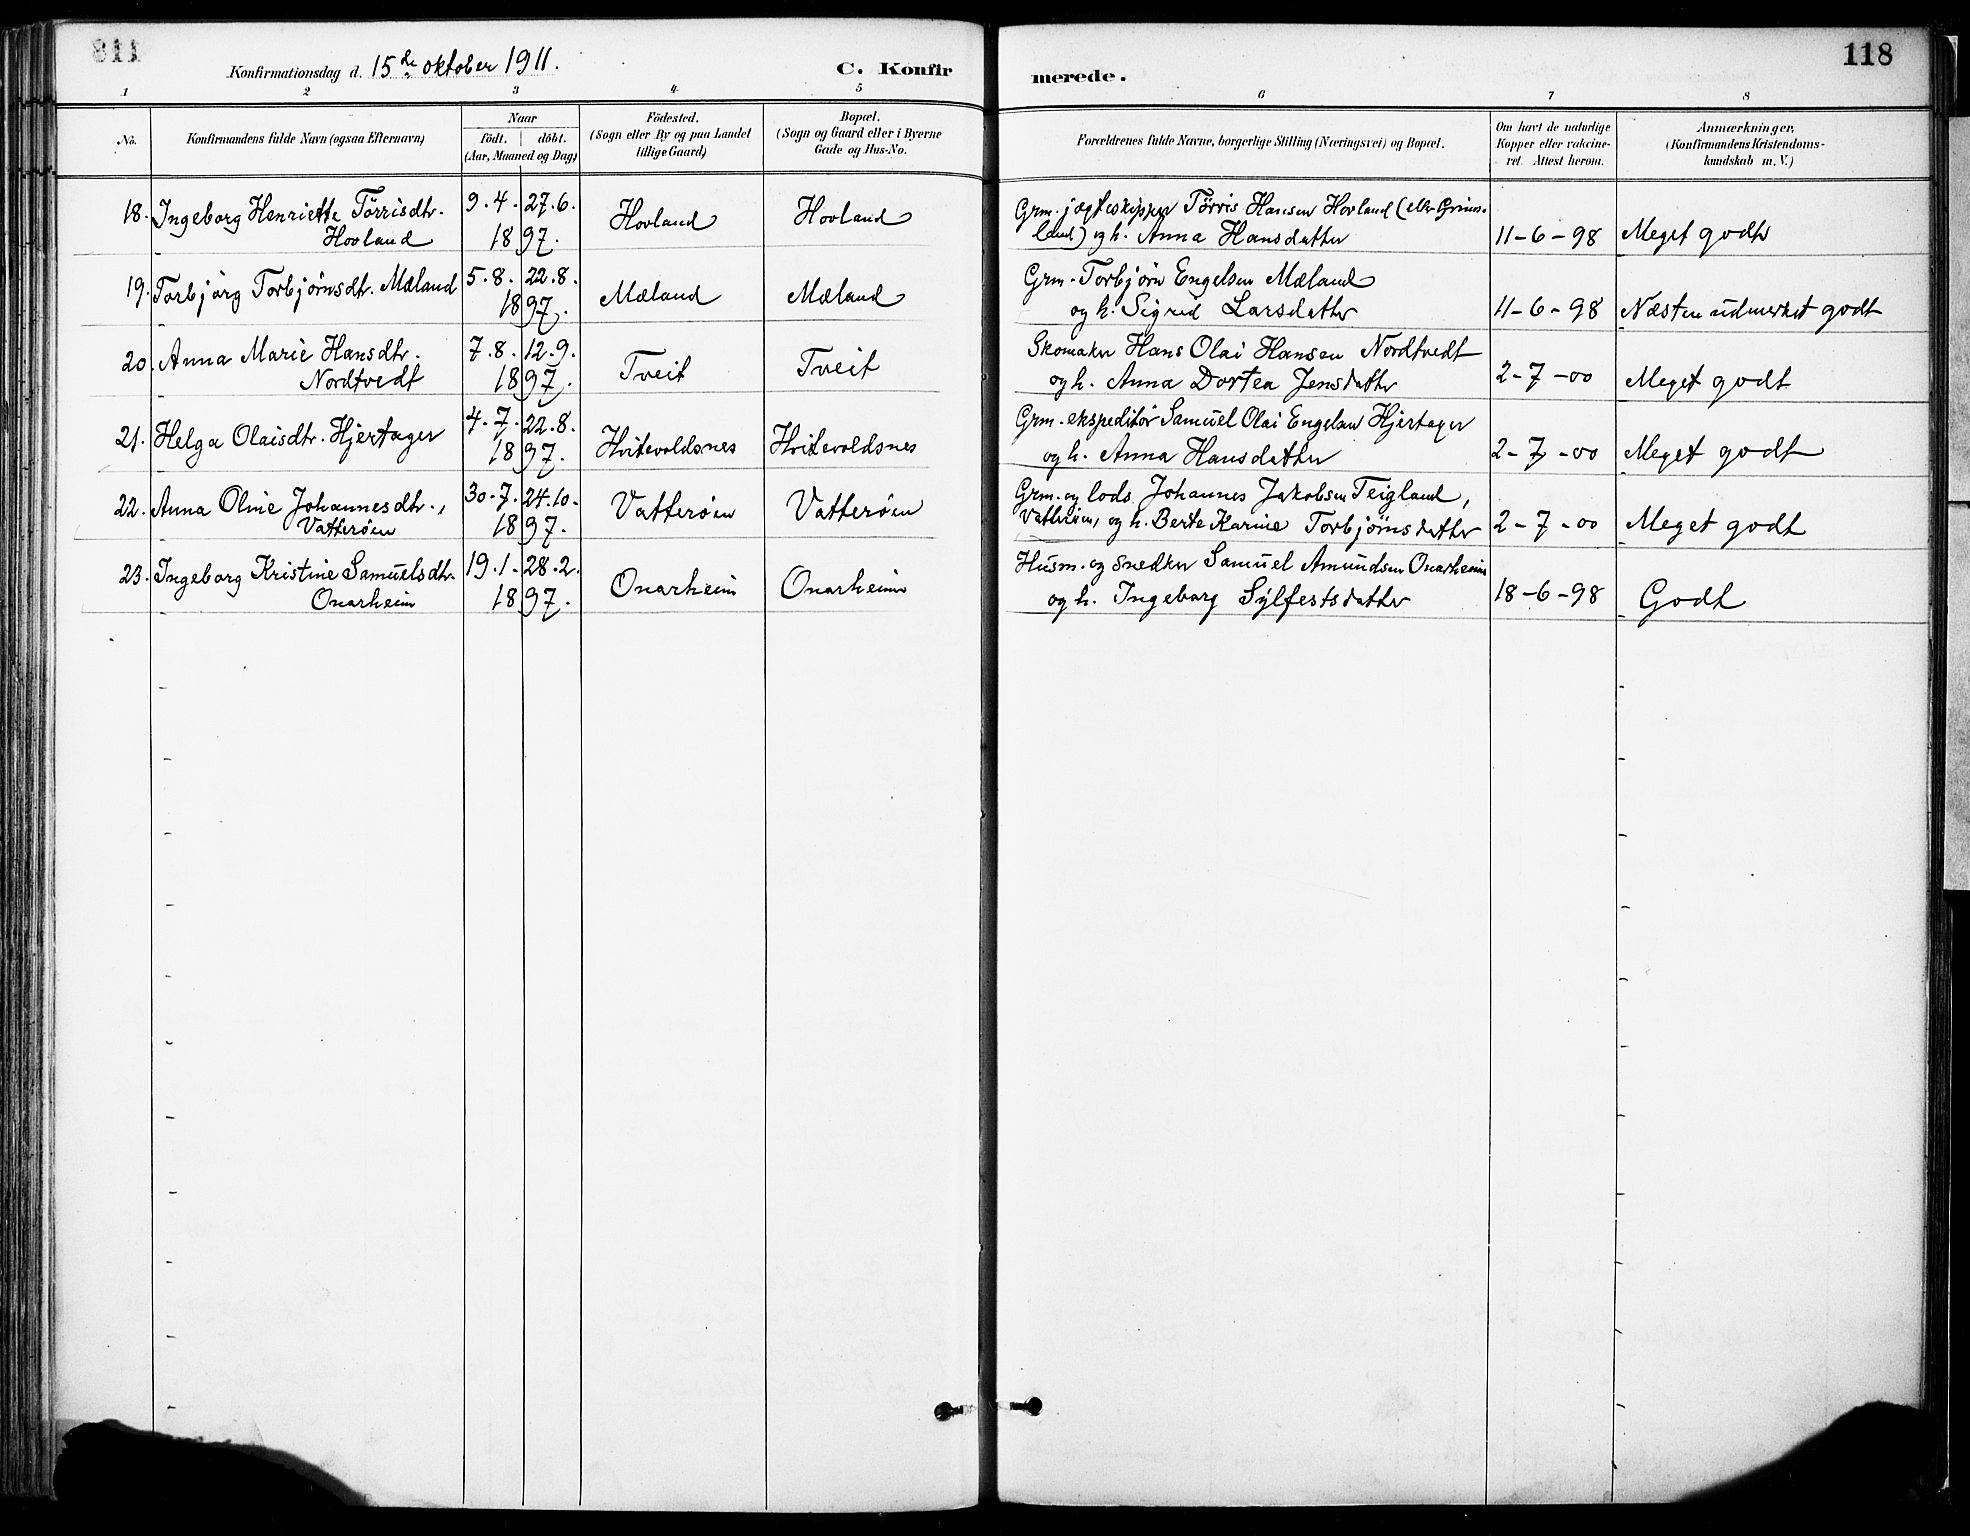 118
Konfirmationsdag d. 15de oktober 1911.
C. Konfirmerede.
118
1 2 3 4 5 6 7 8
No.
Konfirmandens fulde Navn (ogsaa Efternavn)
Naar
födt. döbt.
(Aar, Maaned og Dag)
Födested.
(Sogn eller By og paa Landet
tillige Gaard)
Bopæl.
(Sogn og Gaard eller i Byerne
Gade og Hus-No.
Forældrenes fulde Navne, borgerlige Stilling (Næringsvei) og Bopæl.
Om havt de naturlige
Kopper eller vakcine-
ret. Attest herom.
Anmærkninger,
(Konfirmandens Kristendoms-
kundskab m. V.)
18. Ingeborg Henriette Törrisdtr. 9.4. 27.6. Hovland Hovland Grm. jægteskipper Törris Hansen Hovland (eller Grims-
Hovland 1897. land) og h. Anna Hansdatter 11-6-98 Meget godt
19. Torbjørg Torbjørnsdtr. Mæland 5.8. 22.8. Mæland Mæland Grm. Torbjörn Engelsen Mæland
1897. og h. Sigrid Larsdatter 11-6-98 Næsten udmerket godt
20. Anna Marie Hansdtr. 7.8. 12.9. Tveit Tveit Skomaker Hans Olai Hansen Nordtvedt
Nordtvedt 1897. og h. Anna Dortea Jensdatter 2-7-00 Meget godt
21. Helga Olaisdtr. Hjertager 4.7. 22.8. Hvitevoldsnes Hvitevoldsnes Grm. ekspeditör Samuel Olai Engelsen Hjertager
1897. og h. Anna Hansdatter 2-7-00 Meget godt
22. Anna Oline Johannesdtr., 30.7. 24.10. Vatterøen Vatterøen Grm. og lods Johannes Jakobsen Teigland,
Vatterøen 1897. Vatterøen, og h. Berte Karine Torbjørnsdatter 2-7-00 Meget godt
23. Ingeborg Kristine Samuelsdtr. 19.1. 28.2. Onarheim Onarheim Husm. og snedker Samuel Amundsen Onarheim
Onarheim 1897. og h. Ingeborg Sylfestsdatter 18-6-98 Godt